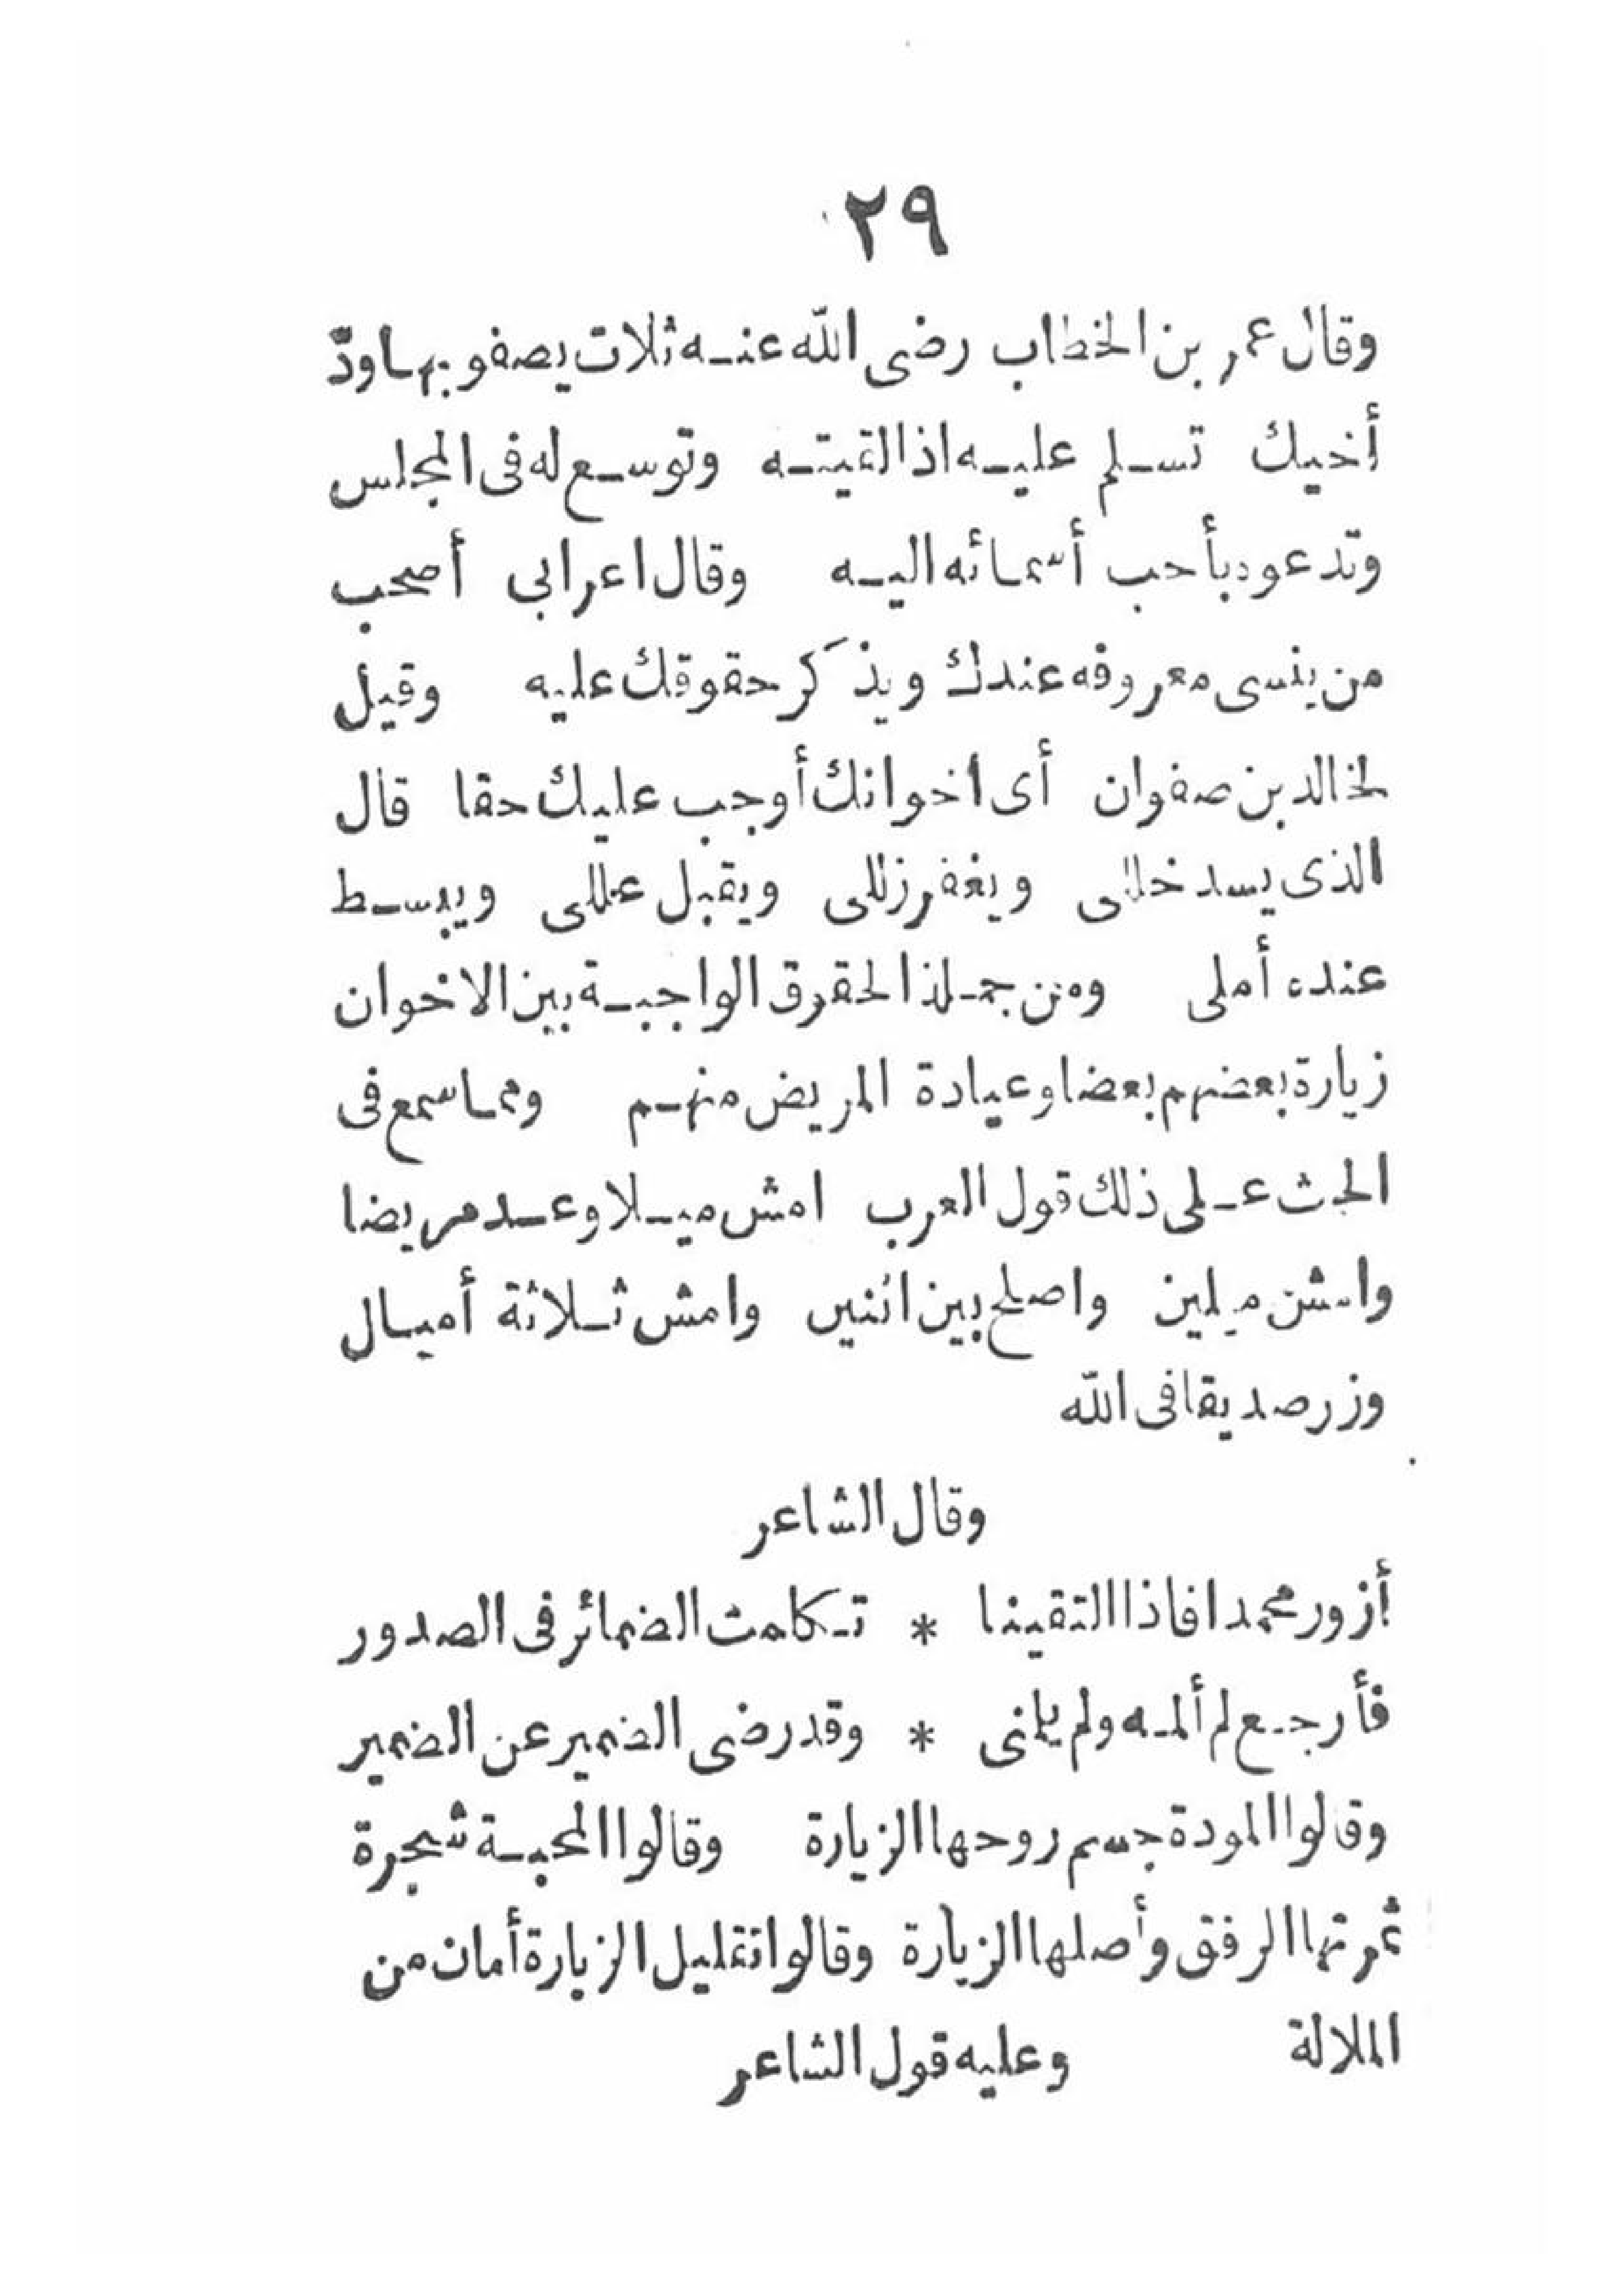 ٢٩
وقال عمر بن الخطاب رضى الله عنه ثلاث يصفو بها ودّ
أخيك تسلم عليه اذا لقيته وتوسع له فى المجلس
وتدعوه بأحب أسمائه اليه وقال اعرابى أصحب
من ينسى معروفه عندك ويذكر حقوقك عليه وقيل
لخالد بن صفوان أى اخوانك أوجب عليك حقا قال
الذى يسد خللى ويغفر زللى ويقبل عللى ويبسط
عنده أملى ومن جملة الحقوق الواجبة بين الاخوان
زيارة بعضهم بعضا وعيادة المريض منهم ومما سمع فى
الحث على ذلك قول العرب امش ميلا وعد مريضا
وامش ميلين واصلح بين اثنين وامش ثلاثة أميال
وزر صديقا فى الله
وقال الشاعر
أزور محمدا فاذا التقينا * تكلمت الضمائر فى الصدور
فأرجع لم ألمه ولم يلمنى * وقد رضى الضمير عن الضمير
وقالوا المودة جسم روحها الزيارة وقالوا المحبة شجرة
ثمرتها الرفق وأصلها الزيارة وقالوا تقليل الزيارة أمان من
الملالة وعليه قول الشاعر